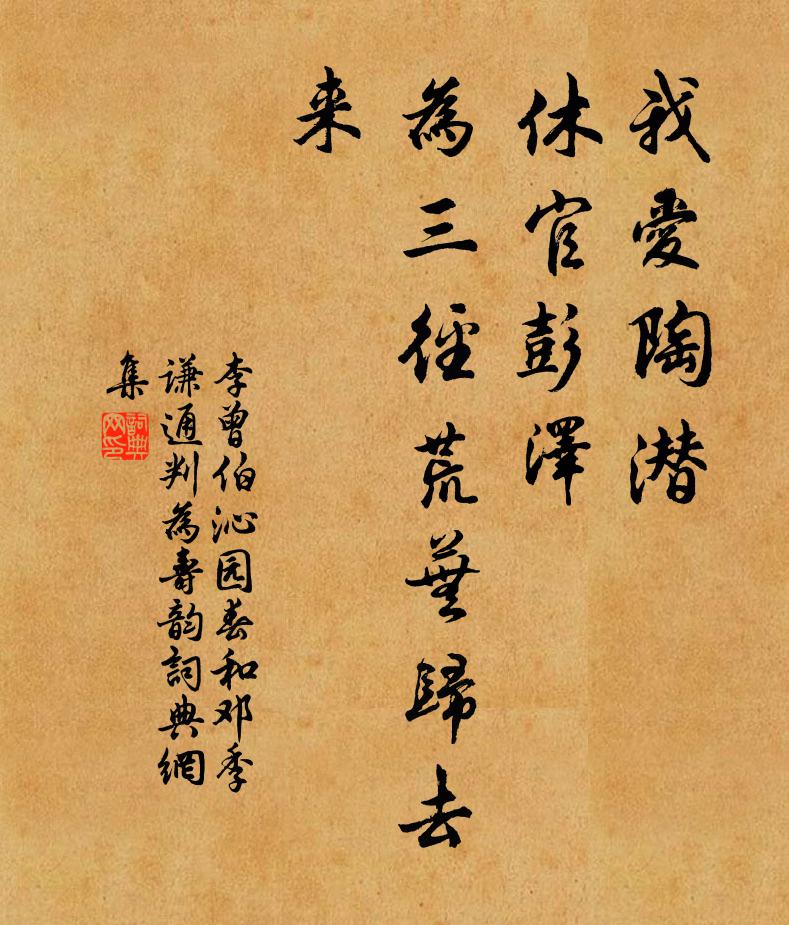 我愛陶潜
休官彭澤
為三径荒蕪歸去
来
李曾伯沁园春和邓季
谦通判為壽韵詞典網
集
詞典
网印